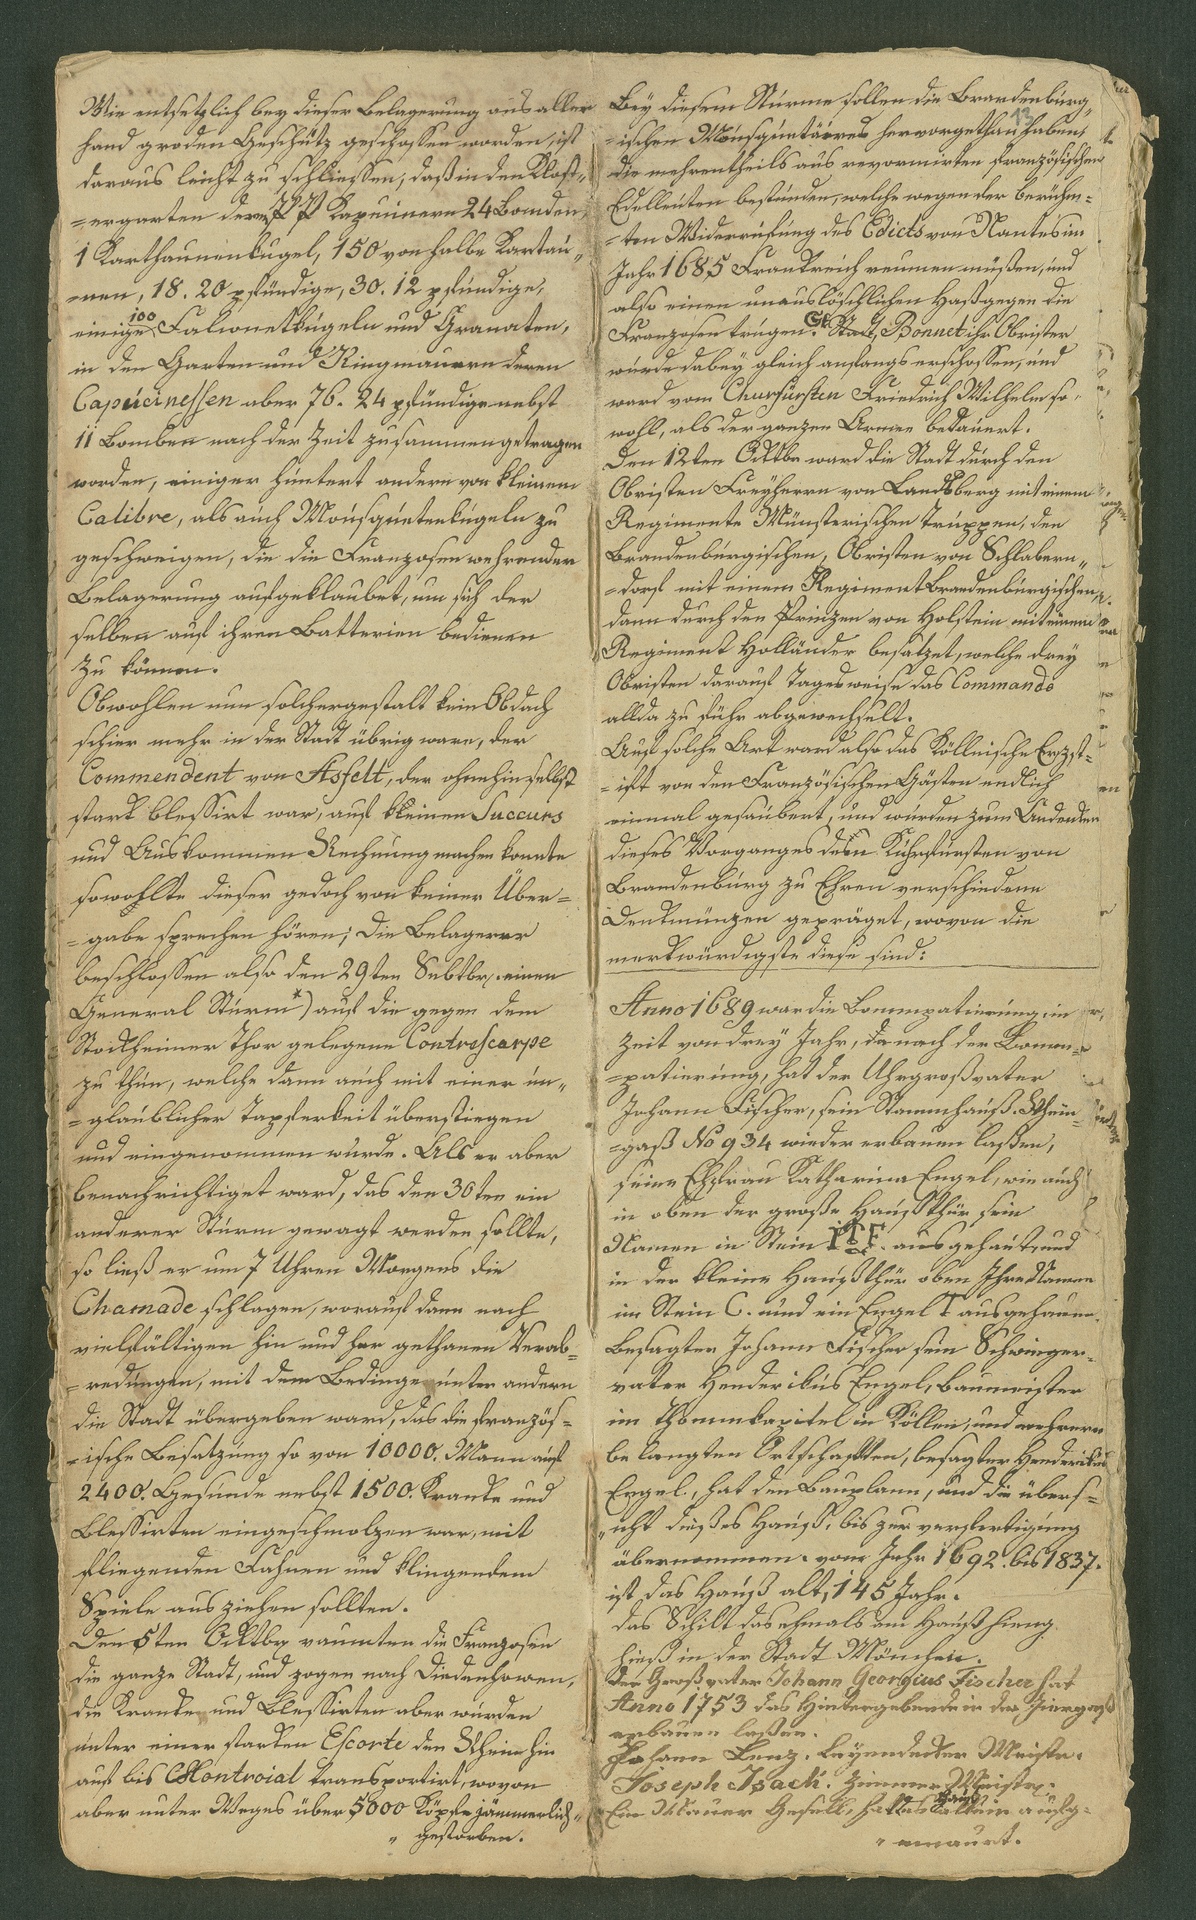 Wie entsetzlich bey dieser Belagerung aus aller
hand groben Geschütz geschossen worden, ist
daraus leicht zu schliessen, daß in den Klost„
=ergarten deren P P Kapuinern 24 Bomben,
1 Karthaunenkugel, 150 von halbe Kartau„
=nen, 18. 20 pfündige, 30. 12 pfündige,
einige 100 Falconetkugeln und Granaten,
in den Garten und Ringmauern deren
Capucinessen aber 76. 24 pfündige nebst
11 Bomben nach der Zeit zusammengetragen
worden, einiger hundert andern von kleinem
Calibre, als auch Mousquetenkugeln zu
geschweigen, die die Franzosen wehrender
Belagerung aufgeklaubet, um sich der
selben auf ihren Batterien bedienen
zu können.
Obwohlen nun solchergestalt kein Obdach
schier mehr in der Stadt übrig ware, der
Commendent von Asfelt, der ohnehin selbst
stark blessirt war, auf kleinen Succurs
und Auskommen Rechnung machen konnte
so wohllte dieser gedoch von keiner Über=
=gabe sprechen hören; die Belagerer
beschlossen also den 29ten Sebtbr. einen
General Sturm*) auf die gegen dem
Stockheimer Thor gelegene Contrescarpe
zu thun, welche dann auch mit einer un„
=glaublicher Tapferkeit überstiegen
und eingenommen wurde. Als er aber
benachrichtiget ward, das den 30ten ein
anderer Sturm gewagt werden sollte,
so ließ er um 7 Uhren Morgens die
Chamade schlagen, worauf dann nach
vielfältigen hin und her gethanen Verab=
=redungen, mit dem Bedinge unter andern
die Stadt übergeben ward, das die französ=
=ische Besatzung so von 10000. Mann auf
2400. Gesunde nebst 1500. Kranke und
Blessirten eingeschmolzen war, mit
fliegenden Fahnen und klingendem
Spiele ausziehen sollten.
Den 5ten Ocktbr raumten die Franzosen
die ganze Stadt, und zogen nach Diedenhowen,
die Kranke und Blessirten aber wurden
unter einer starken Escorte den Rhein hin
auf bis Montroial transportirt, wovon
aber unter Weges über 5000 Köpfe jämmerlich„
„ gestorben.
13
Bey diesem Sturme sollen die Brandenburg„
=ischen Mousquetaires hervorgethan haben,
die mehrentheils aus revormirten französischen
Edelleuten bestunden, welche wegen der berühm=
=ten Widerrufung des Edicts von Nantes im
Jahr 1685 Frankreich reumen müßen, und
also einen unauslöschlichen Haß gegen die
Franzosen trugen. St. Bonnet ihr Obrister
wurde dabey gleich anfangs erschossen, und
ward vom Churfürsten Friedrich Wilhelm so„
wohl, als der ganzen Armee bedauert.
Den 12ten Ocktbr ward die Stadt durch den
Obristen Freyherrn von Landsberg mit einem
Regimente Münsterischen Truppen, den
Brandenburgischen, Obristen von Schlabern„
=dorf mit einem Regiment Brandenburgischen,
dann durch den Prinzen von Holstein mit einem
Regiment Holländer besatzet, welche drey
Obristen darauf tagesweise das Commando
allda zu führ abgewechselt.
Auf solche Art ward also das Köllnische Erzst=
=ift von den Französischen Gästen endlich
einmal gesaubert, und wurden zum Andenken
dieses Vorganges dem Kuhrfürsten von
Brandenburg zu Ehren verschiedene
Denkmünzen gepräget, wovon die
merkwürdigste diese sind:
Anno 1689 war die Bommpatierung, in
Zeit von drey Jahr, danach der Bomm=
=patierung, hat der Uhrgroßvater
Johann Fischer, sein Stammhauß. Rhein
=gaß No 934 wieder erbauen laßen,
seine Ehfrau Katharina Engel, wie auch
in oben der große Haußthür sein
Namen in Stein I F. ausgehaut, und
in der kleine Haußthür oben Ihre Namen
im Stein C. und ein Engel T ausgehauen.
Besagter Johann Fischer sein Schwieger=
vater Henderikus Engel, Baumeister
im Thommkapitel in Köllen, und mehrern
belangten Ortschaften, besagter Henderikus
Engel, hat den Bauplann, und die übers=
„icht dießes Hauß, bis zur verfertigung
übernommen. vom Jahr 1692. bis 1837.
ist das Hauß alt, 145 Jahr.
das Schilt das ehmals am Hauß hieng
hieß in der Stadt Mönchen.
Der Großvater Johann Georgius Fischer hat
Anno 1753 das Hintergebeude in der
erbauen laßen.
Johann Lenz. Leyendecker Meister.
Joseph Isack. Zimmer Meister.
Ein Mauer Gesell, hat das Hauß allein aufg=
„ emaurt.